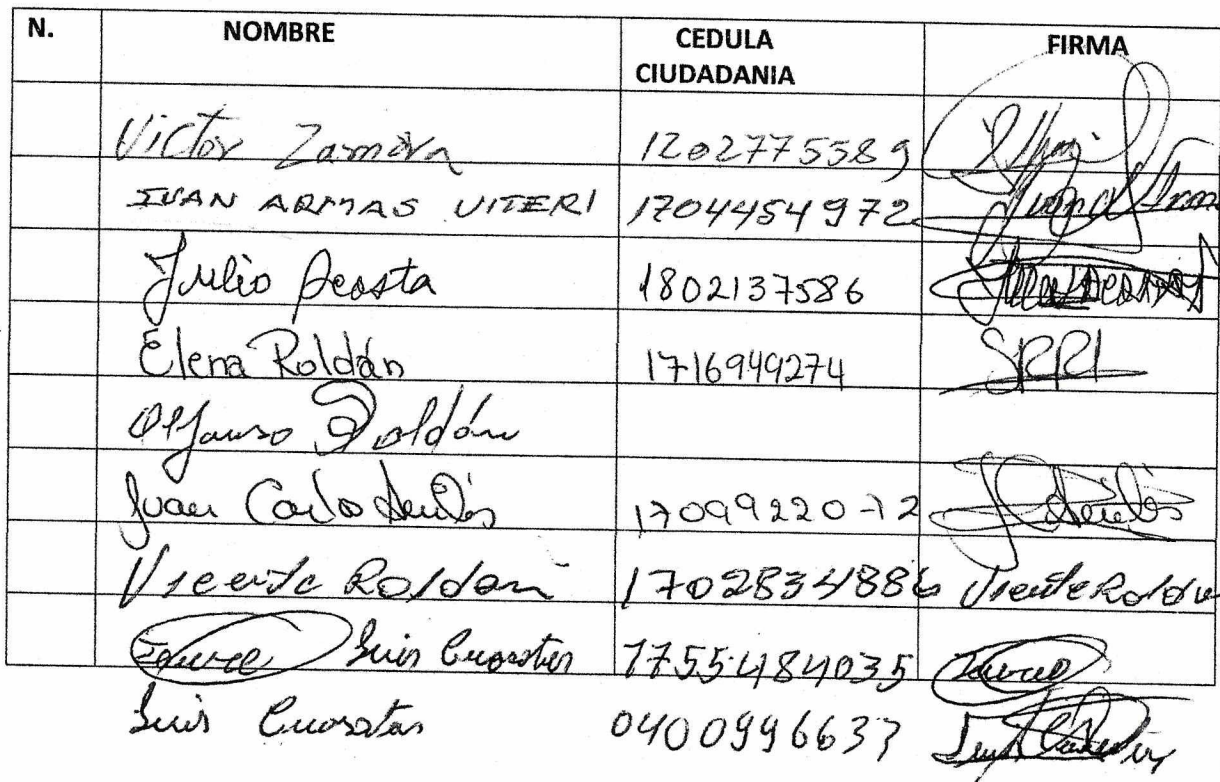 N. NOMBRE CEDULA CIUDADANIA FIRMA
Victor Zamora 1202775589
IVAN ARMAS VITERI 1704454972
Julio Acosta 1802137586
Elena Roldán 1716949274 SRRI
Alfonso Roldán
Juan Carlo 1709922072
Vicente Roldan 1702834886 Vicente Roldan
Luis Cuasatas 1755484035
Luis Cuasatas 0400996637